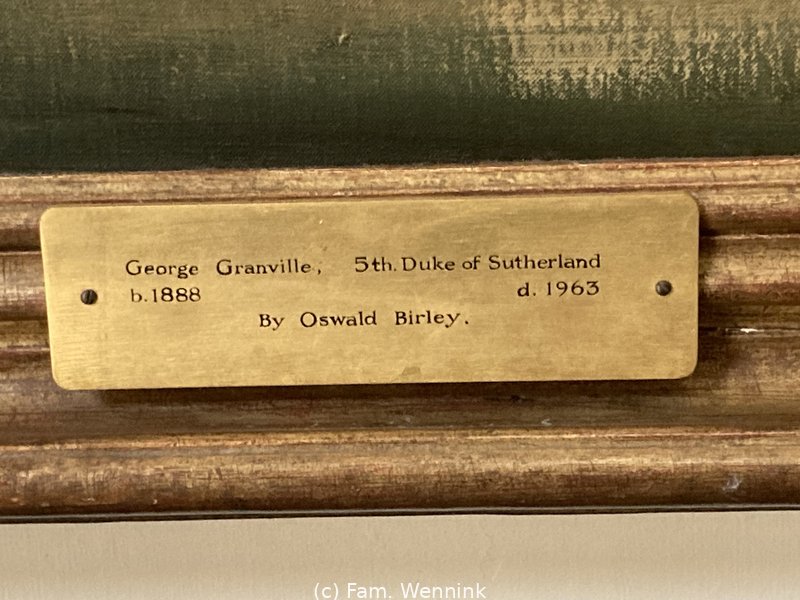 George Granville, 5th. Duke of Sutherland
b.1888 d. 1963
By Oswald Birley.
(c) Fam. Wennink